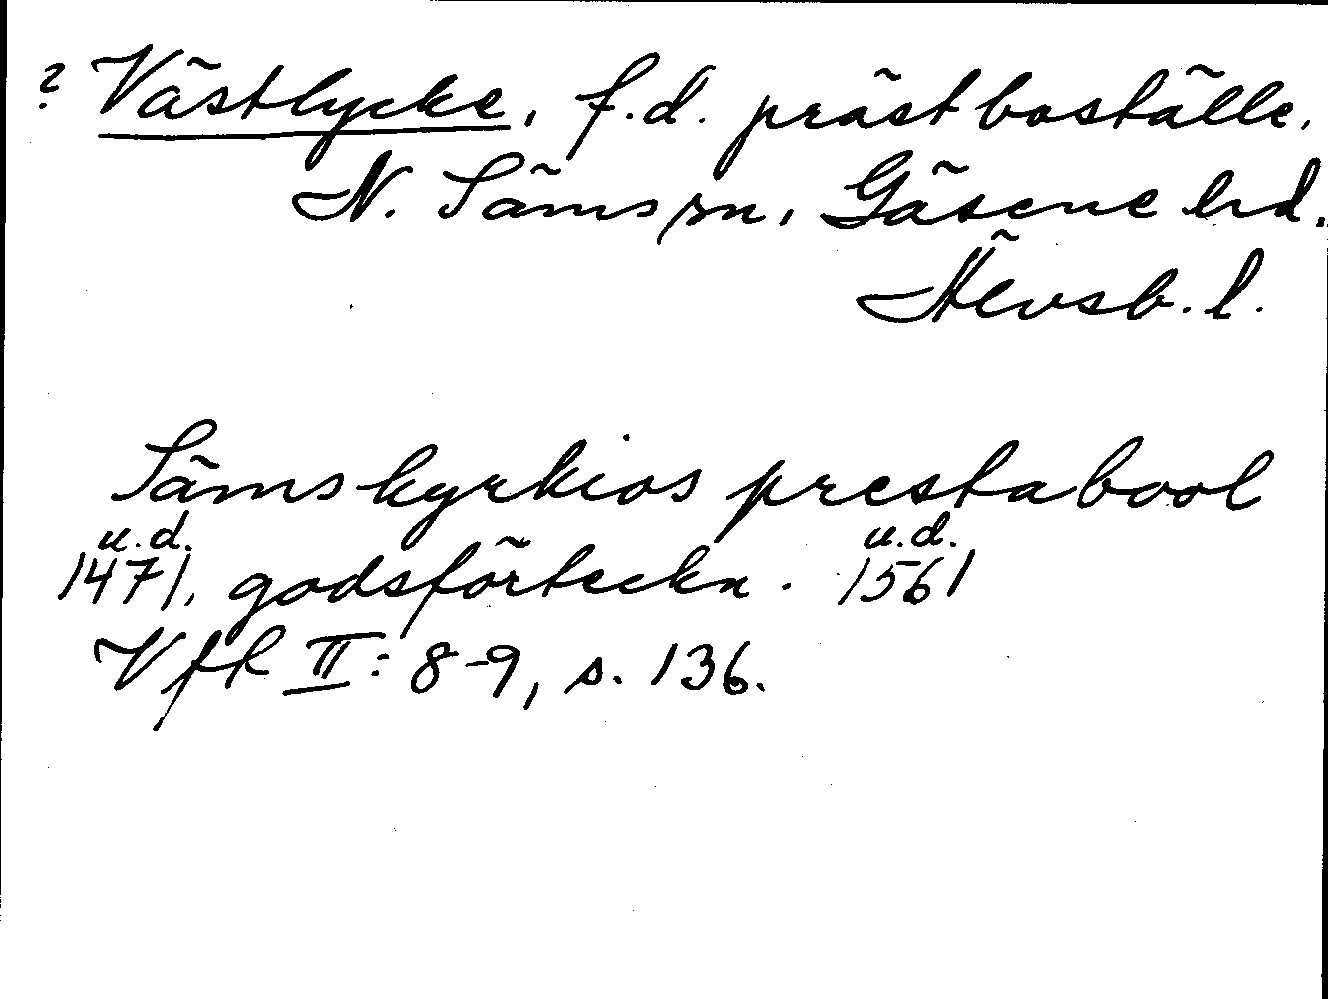 ? Västlycke, f.d. prästboställe,
N. Säms sn, Gäsene hd.
Älvsb. l.
Säms kyrkios prestabool
u.d. u.d.
1471, godsförteckn. 1561
Vfk II: 8-9, s. 136.